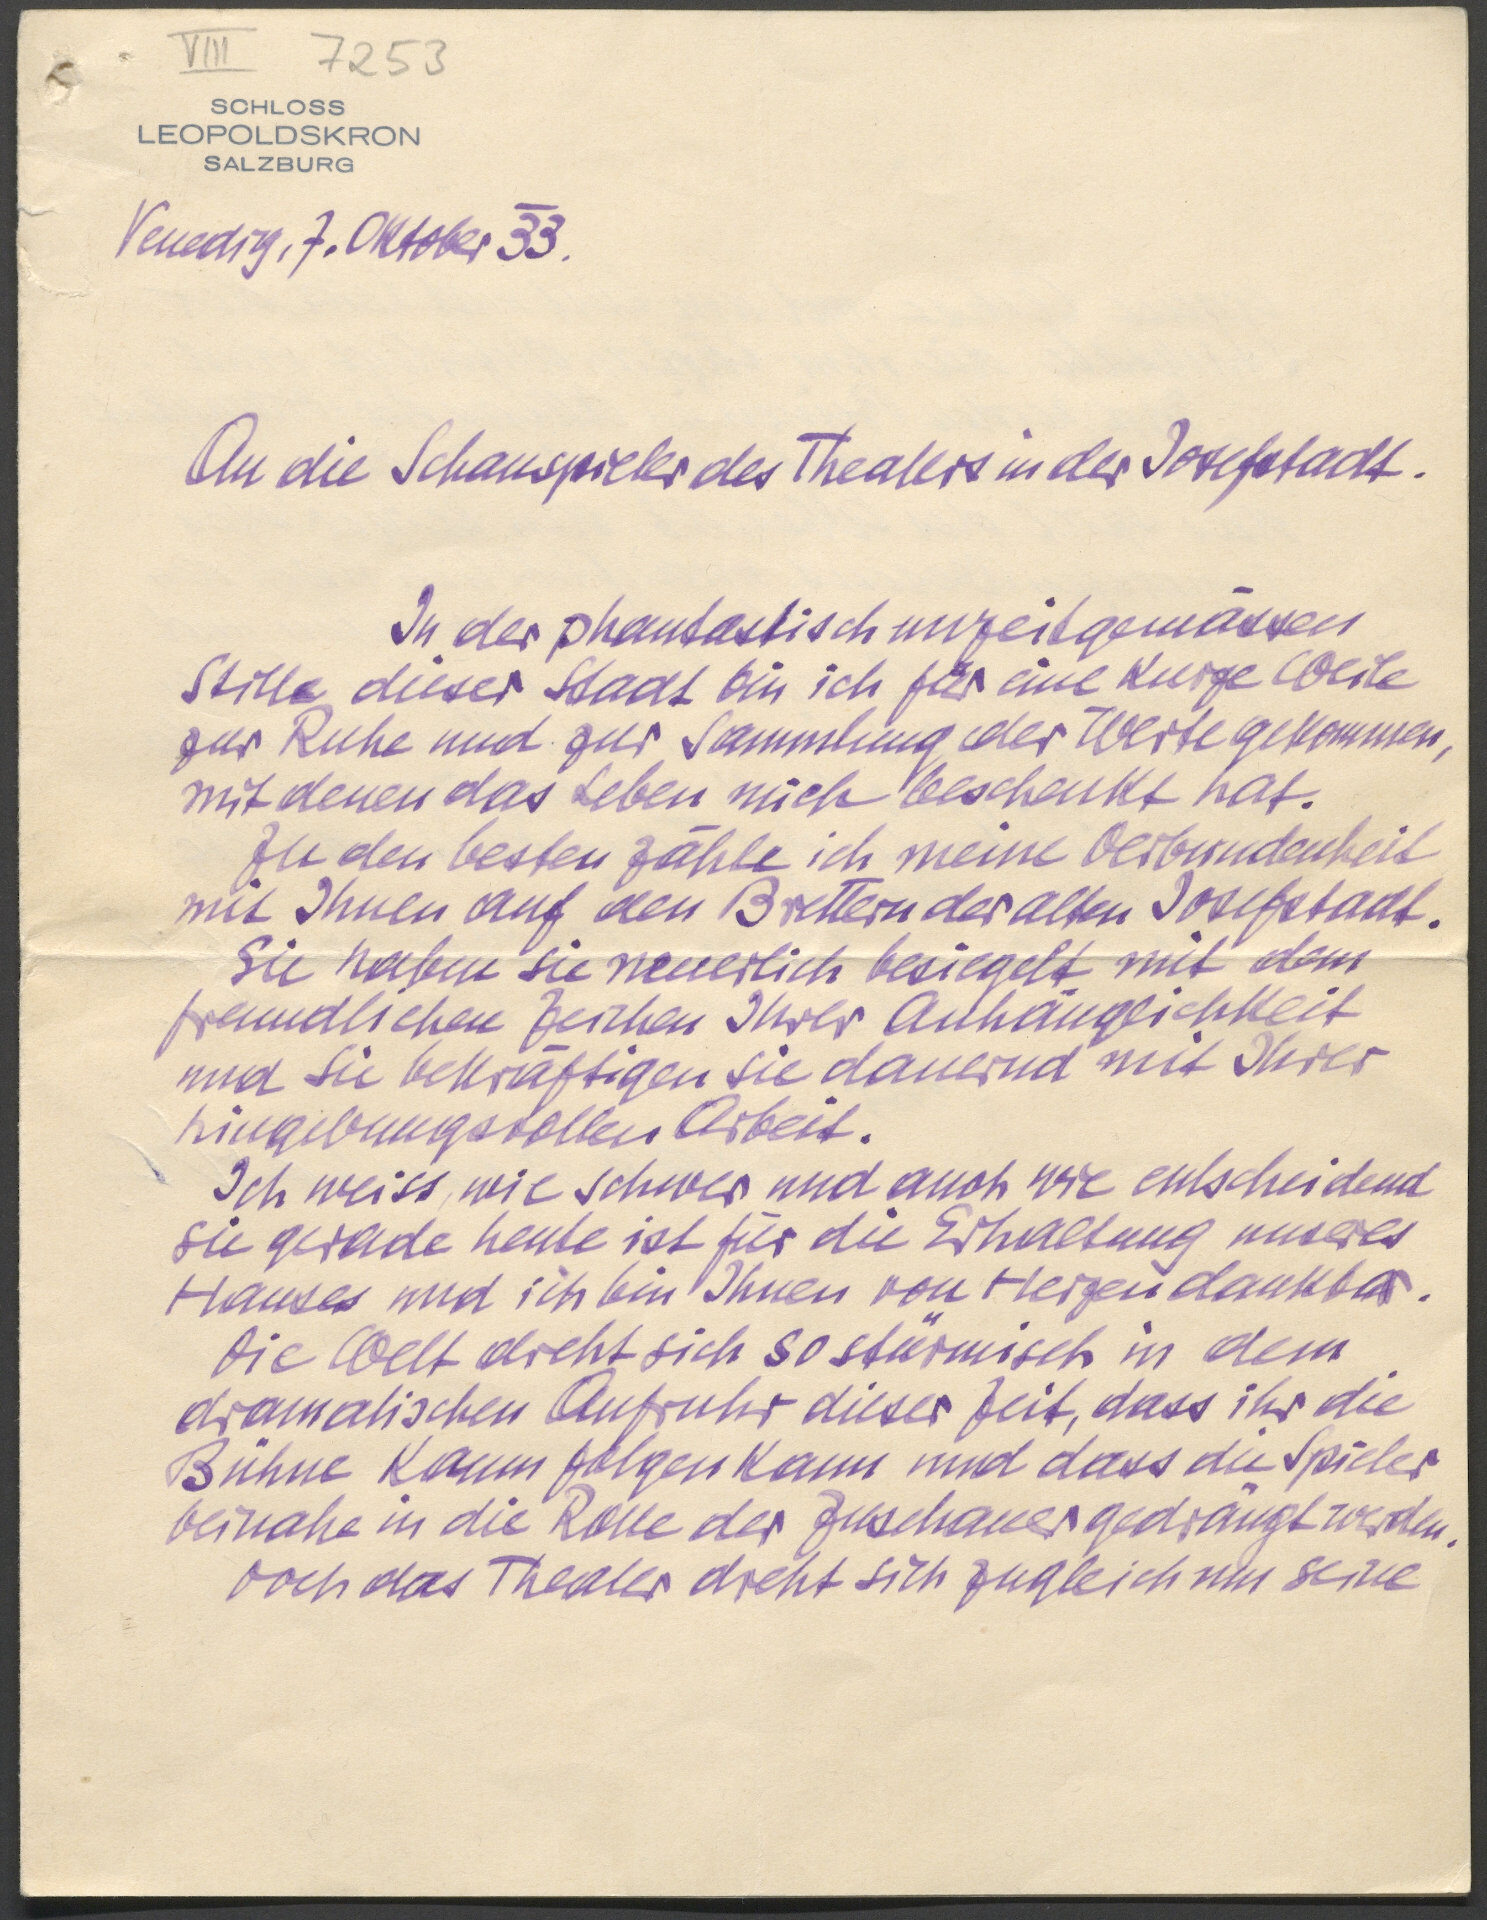 VIII 7253
SCHLOSS
LEOPOLDSKRON
SALZBURG
Venedig, 7. Oktober 33.
An die Schauspieler des Theaters in der Josefstadt.
In der phantastisch unzeitgemässen
Stille dieser Stadt bin ich für eine kurze Weile
zur Ruhe und zur Sammlung der Werte gekommen,
mit denen das Leben mich beschenkt hat.
Zu den besten zähle ich meine Verbundenheit
mit Ihnen auf den Brettern der alten Josefstadt.
Sie haben sie neuerlich besiegelt mit dem
freundlichen Zeichen Ihrer Anhänglichkeit
und Sie bekräftigen sie dauernd mit Ihrer
hingebungsvollen Arbeit.
Ich weiss, wie schwer und auch wie entscheidend
sie gerade heute ist für die Erhaltung unseres
Hauses und ich bin Ihnen von Herzen dankbar.
Die Welt dreht sich so stürmisch in dem
dramatischen Aufruhr dieser Zeit, dass ihr die
Bühne kaum folgen kann und dass die Spieler
beinahe in die Rolle der Zuschauer gedrängt werden.
Doch das Theater dreht sich zugleich um seine